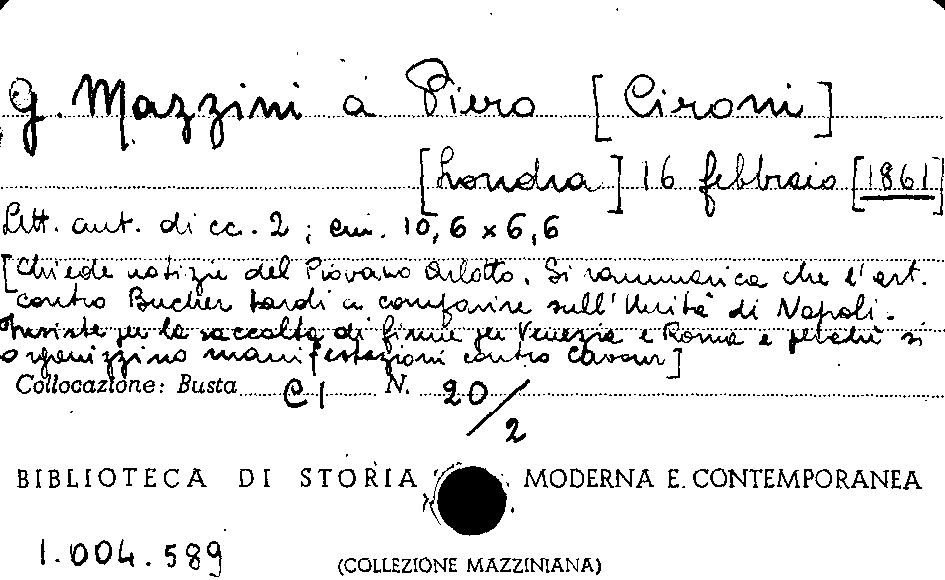 G. Mazzini a Piero [Cironi]
[Londra] 16 febbraio [1861]
Lett. aut. di cc. 2 ; cm. 10,6 x 6,6
[Chiede notizie del Piovano Arlotto. Si rammarica che l'art.
contro Bucher tardi a comparire sull'Unità di Napoli.
Insiste per la raccolta di firme per Venezia e Roma e perché si
organizzino manifestazioni contro Cavour]
Collocazione: Busta C I N. 20/2
BIBLIOTECA DI STORIA MODERNA E CONTEMPORANEA
1.004.589
(COLLEZIONE MAZZINIANA)